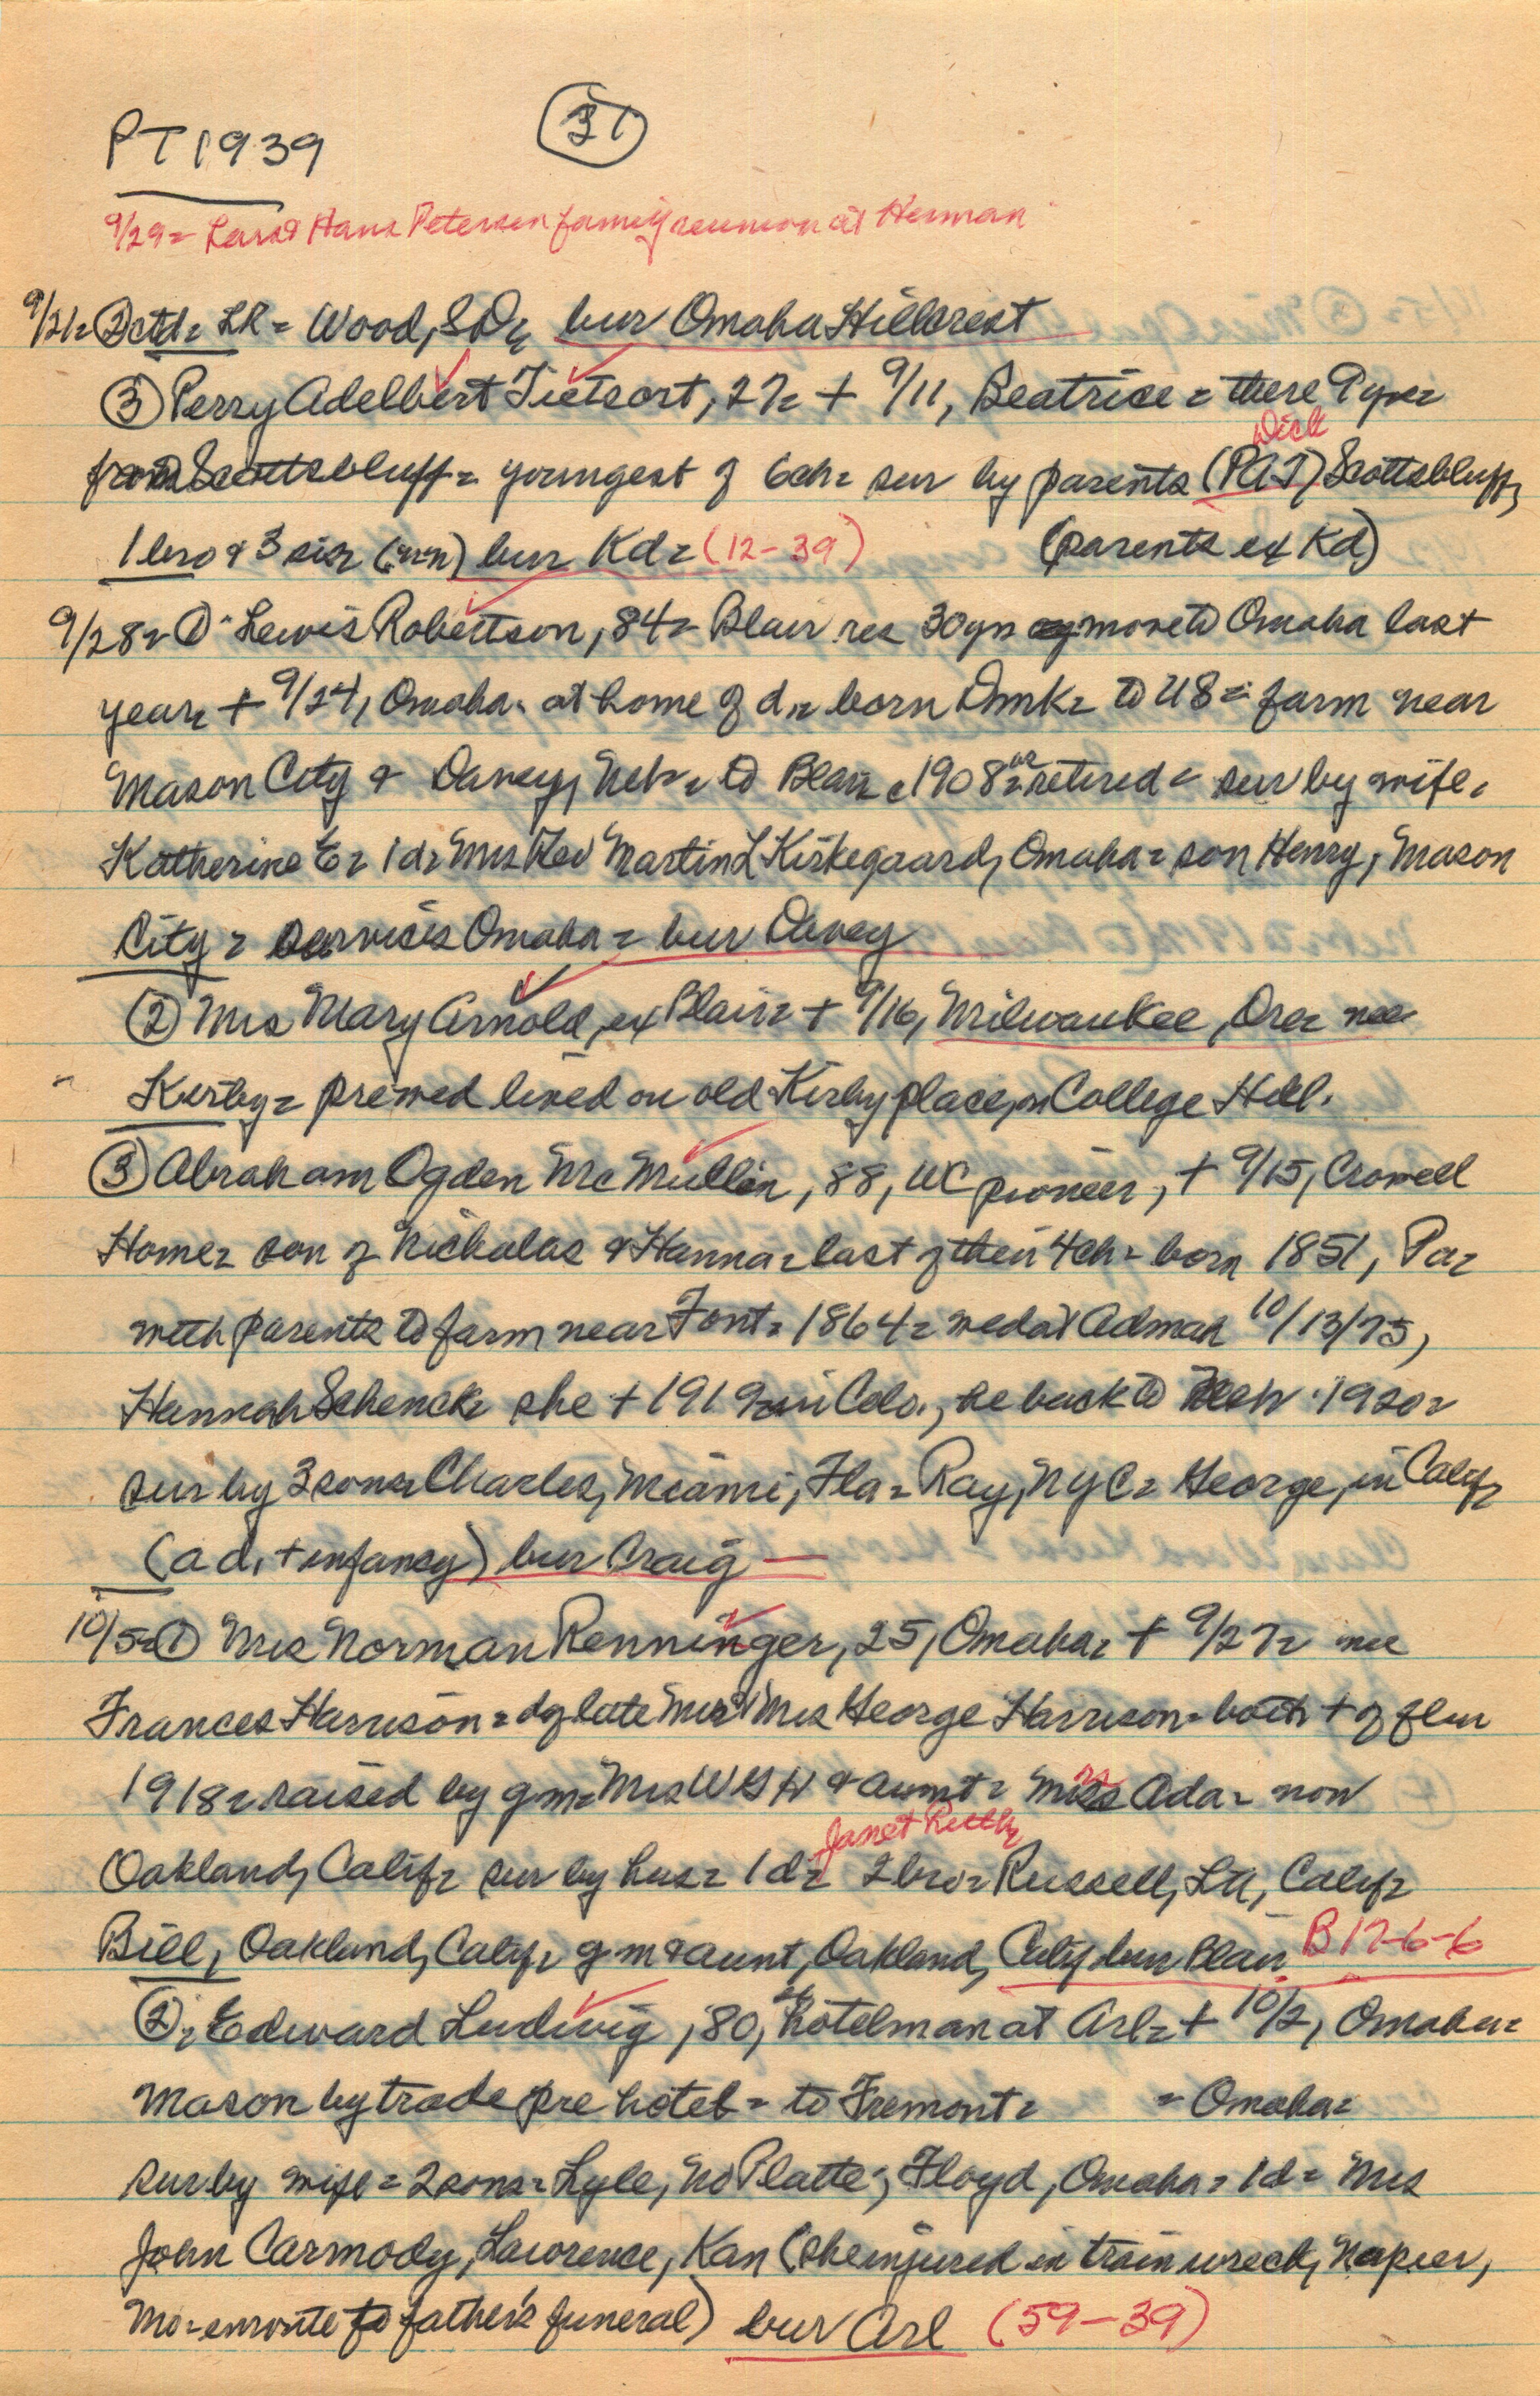 PT 1939
31
9/29= Lars & Hans Petersen family reunion at Herman
9/21= ② ctd= LR= Wood, SD= bur Omaha Hillcrest
③ Perry Adelbert Tietsort, 27= + 9/11, Beatrice = there 9 yrs=
from Scottsbluff= youngest of 6ch= sur by parents (PAT) Scottsbluff,
Dick
1 bro & 3 sis (nn) bur Kd= (12-39) (parents ex Kd)
9/28= ① Lewis Robertson, 84= Blair res 30yrs move to Omaha last
year= + 9/24, Omaha, at home of d,= born Dmk= to US= farm near
Mason City & Davey, Neb= to Blair 1908= retired= sur by wife,
Katherine E= 1d= Mrs Rev Martin L Kirkegaard, Omaha= son Henry, Mason
City= services Omaha= bur Davey
② Mrs Mary Arnold, ex Blair= + 9/16, Milwaukee, Ore= nee
Kirby= prewed lived on old Kirby place, on College Hill.
③ Abraham Ogden McMullin, 88, WC pioneer, + 9/15, Crowell
Home= son of Nickolas & Hanna= last of their 4ch= born 1851, Pa=
with parents to farm near Font= 1864= wed at Admah 10/13/75,
Hannah Schenck= she + 1919 in Colo., he back to Neb 1920=
sur by 3 sons= Charles, Miami, Fla= Ray, NYC= George, in Calif=
(a d, + infancy) bur Craig
10/5= ① Mrs Norman Renninger, 25, Omaha= + 9/27= nee
Frances Harrison= d of late Mr & Mrs George Harrison= both + of flu
1918= raised by gm= Mrs WGH & aunt= Mrs Ada= now
Janet Ruth=
Oakland, Calif= sur by hus= 1d= 2bro= Russell, LA, Calif=
Bill, Oakland, Calif= gm & aunt, Oakland, Calif bur Blair B 17-6-6
②= Edward Ludwig, 80, ex hotelman at Arl= + 10/2, Omaha=
mason by trade pre hotel= to Fremont= = Omaha=
sur by wife= 2sons= Lyle, No Platte; Floyd, Omaha= 1d= Mrs
John Carmody, Lawrence, Kan (she injured in train wreck, Napier,
Mo= enroute to father's funeral) bur Arl (59-39)